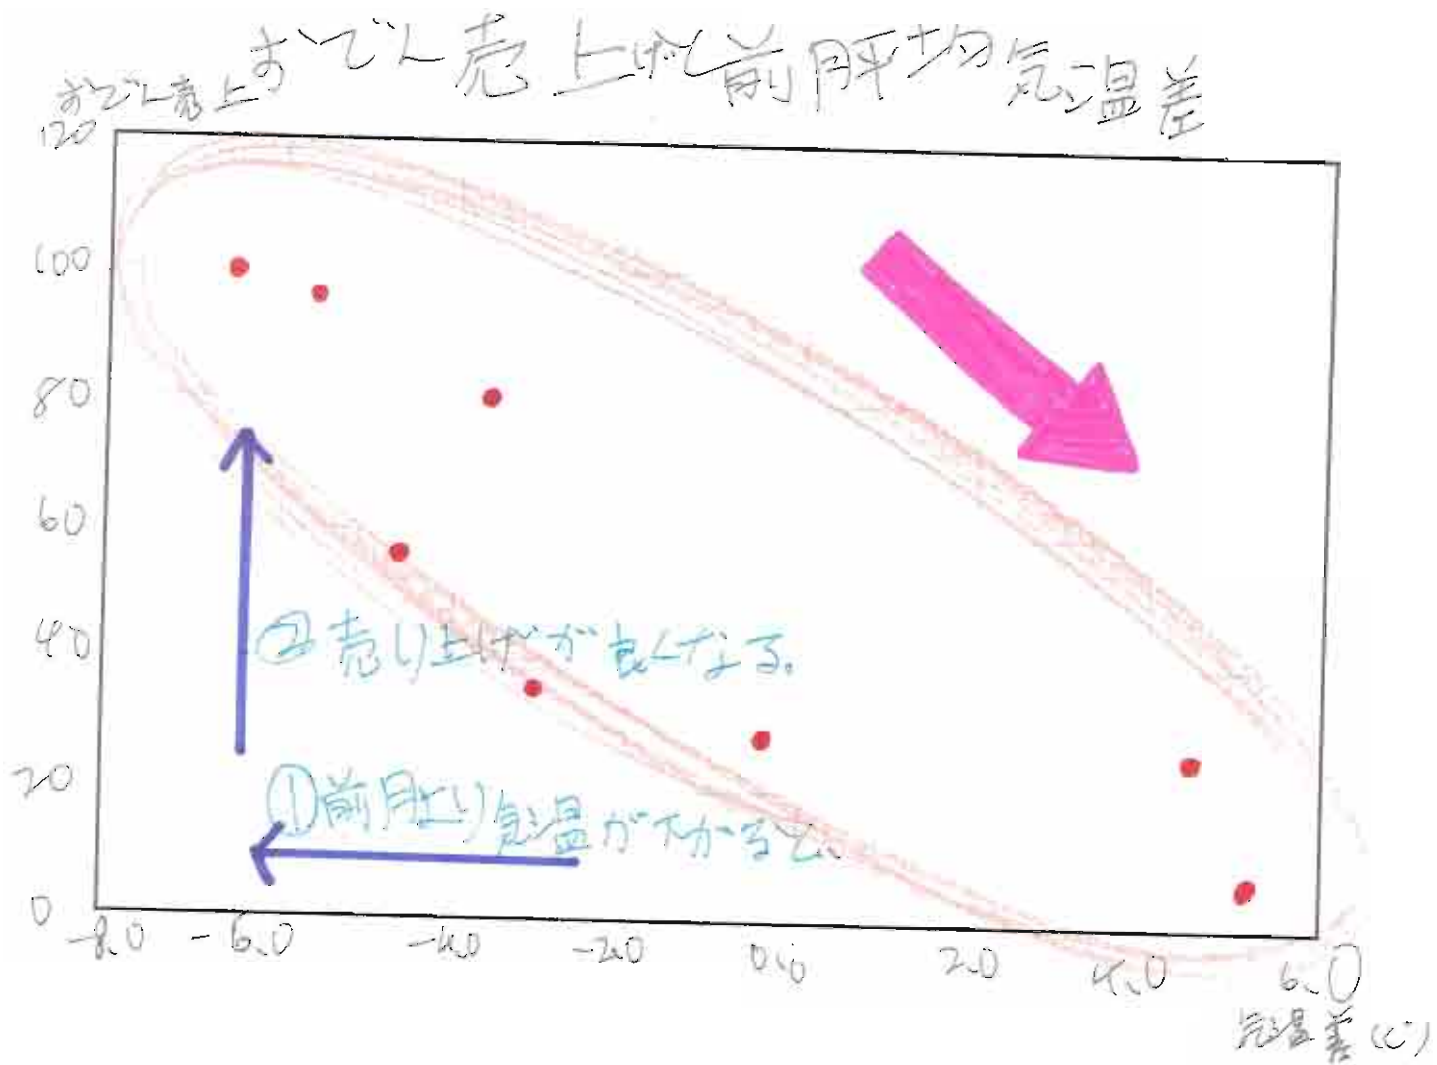 おでん売上げと前月平均気温差
おでん売上
120
100
80
60
40
20
0
②売り上げが良くなる。
①前月より気温が下がると、
-8.0 -6.0 -4.0 -2.0 0.0 2.0 4.0 6.0
気温差(℃)